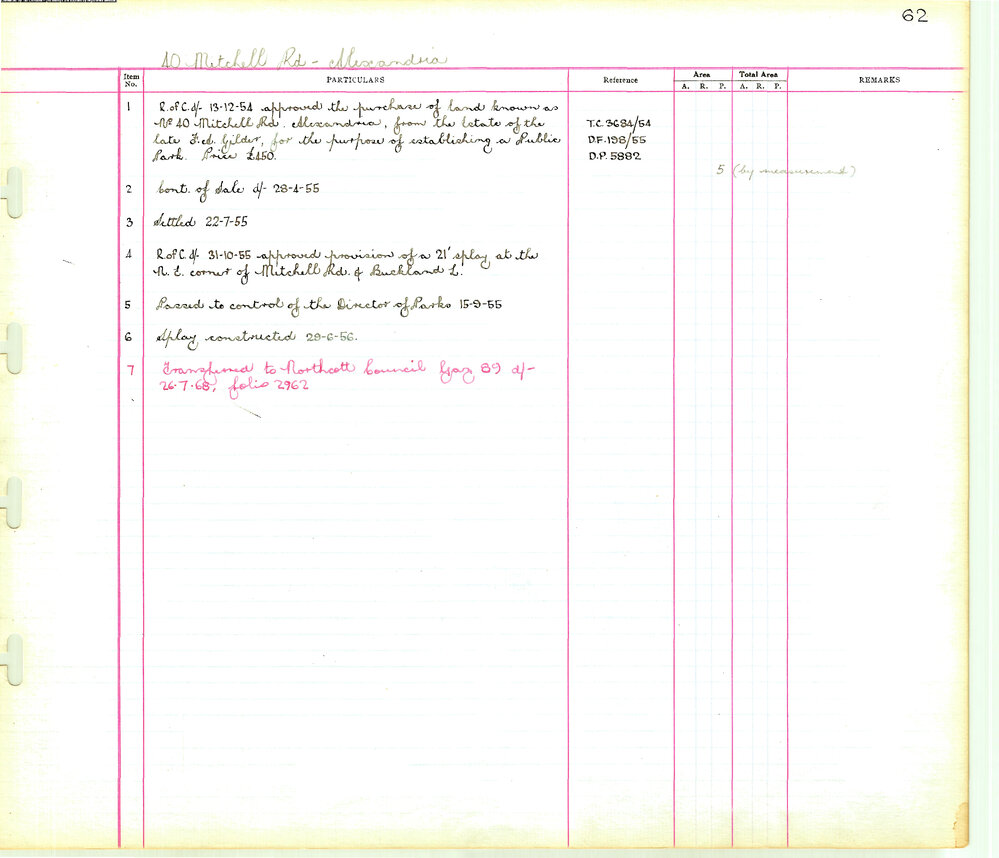 62
40 Mitchell Rd - Alexandria
Item No.
PARTICULARS
Reference
Area
A. R. P.
Total Area
A. R. P.
REMARKS
1 R.of C. d/- 13-12-54 approved the purchase of land known as
Nº 40 Mitchell Rd. Alexandria, from the Estate of the
late Fred. Gilder, for the purpose of establishing a Public
Park. Price £450.
T.C. 3684/54
D.F. 198/55
D.P. 5882
5 (by measurement)
2 Cont. of Sale d/- 28-4-55
3 Settled 22-7-55
4 R.of C. d/- 31-10-55 approved provision of a 21' splay at the
N.E. corner of Mitchell Rd. & Buckland L.
5 Passed to control of the Director of Parks 15-9-55
6 Splay constructed 29-6-56.
7 Transferred to Northcott Council Gaz 89 d/-
26.7.68, folio 2962